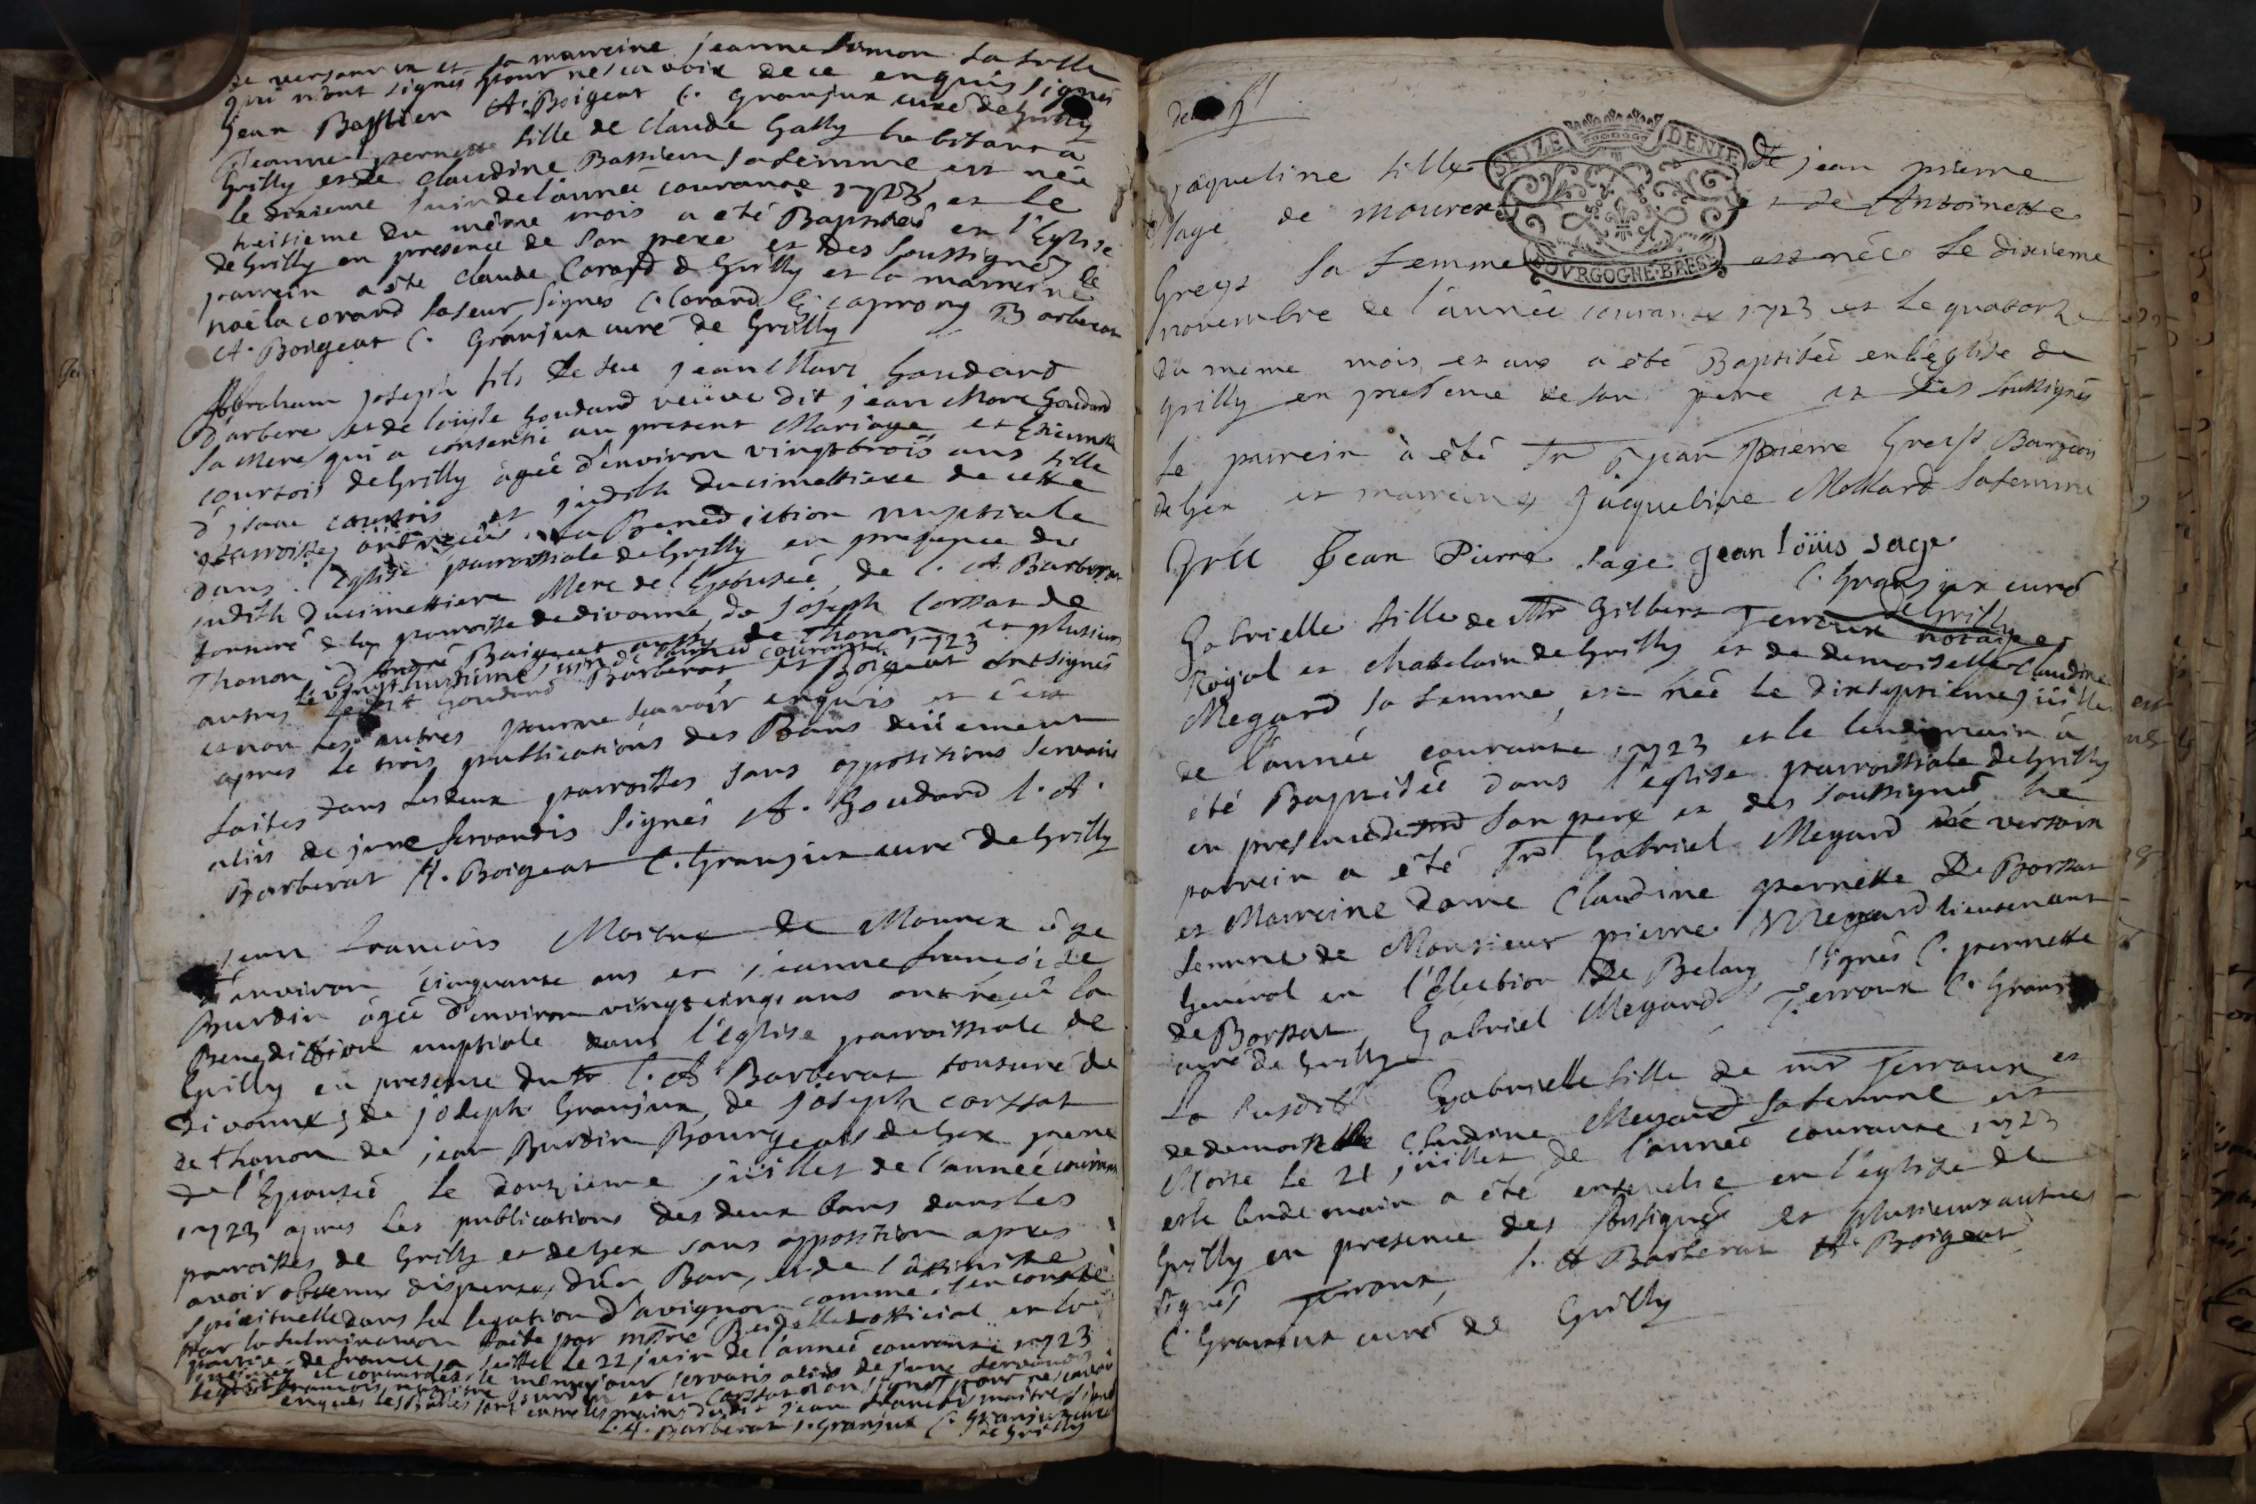 de versonnex et sa marreine jeanne Simon sa fille
qui n'ont signés pour ne scavoir de ce enquis signés
jean Bastien A. Boigeat C. Granjux curé de Grilly
Jeanne pernette fille de Claude Gally habitant a
Grilly et de Claudine Bassieu sa femme est née
le dixieme juin de l'année courante 1723 et le
du même mois a eté Baptisée en l'Eglise
de Grilly en presence de son pere et des soussignéz le
parrein a eté Claude Corand de Grilly et la marreine
noëla corand sa seur signés C. Corand Barberat
A. Boigeat C. Granjux curé de Grilly
Abraham joseph fils de feu jean Marc Goudard
d'arbere et de louise Goudard veüve dit jean Marc Goudard
sa Mere qui a consentie au present Mariage et Etiennette
courtois de Grilly âgée d'environ vingt trois ans fille
d'isaac courtois et judith ducimettiere de cette
parroisse ont reçû la Benediction nuptiale
dans l'Eglise parroissiale de Grilly en presence de
judith Ducimettiere Mere de l'Epousée, de C. A. Barberat
tonsuré de la parroisse de divonne, de joseph Corssat de
Thonon, d'André Boigeat de Thonon et plusieurs
le vingt huitième juin de l'année courante 1723
autres ledit Goudard Barberat et Boigeat ont signés
et non les autres pour ne scavoir enquis et c'est
apres le trois publications des Bans deüement
faites dans les deux parroisses sans oppositions servatis
aliis de jure servandis signés A. Goudard C. A.
Barberat A. Boigeat C. Granjux curé de Grilly
jean francois Maitre de Mourex âge
d'environ cinquante ans et jeanne francoise
Burdin âgée d'environ vingt cinq ans ont recû la
Benediction nuptiale dans l'église parroissiale de
Grilly en presence du sr C. A. Barberat tonsuré de
divonne, de joseph Granjux, de joseph corssat
de thonon de jean Burdin Bourgeois de Gex pere
de l'Epousée le douzieme jüillet de l'année courante
1723 apres les publications des deux bans dans les
parroisses de Grilly et de Gex sans opposition apres
avoir obtenu dispense d'un Ban, et de l'affinité
spirituelle dans la legation d'avignon comme il en conste
par la fulmination faite par official en la
partie de france a le 22 juin de l'année courante 1723
le même jour servatis aliis de jure servandis
ledit francois maitre Burdin et Corssat n'ont signés pour ne scavoir
enquis les sont entre les mains dudit jean francois maitre signés
C. A. Barberat J. Granjux C. Granjux curé
de Grilly
jaqueline fille de jean pierre
sage de mourex et de Antoinette
Greys sa femme est née le dixieme
novembre de l'année courante 1723 et le quatorze
du même mois et an a été Baptisée en l'église de
Grilly en presence de son pere et des soussignés
Le parrein à êté Sr jean pierre Greys Bourgeois
de Gex et marreine jacqueline Mollard sa femme
jean Pierre Sage jean loüis sage
C. Granjux curé
de Grilly
Gabrielle fille de Mr Gilbert Terroux notaire
Royal et chatelain de Grilly et de demoiselle Claudine
Megard sa femme est née le dixseptieme jüillet
de l'année courante 1723 et le lendemain à
été Baptisée dans l'église parroissiale de Grilly
en presence de son pere et des soussignés le
parrein a êté Sr Gabriel Megard de versoix
et Marreine dame Claudine pernette De Borssat
femme de Monsieur pierre Megard lieutenant
General en l'élection de Belay signés C. pernette
de Borssat Gabriel Megard Terroux C. Granjux
curé de Grilly
La susdite Gabrielle fille de mr Terroux et
de demoiselle Claudine Megard sa femme est
Morte le 21 jüillet de l'année courante 1723
et le lendemain a été ensevelie en l'église de
Grilly en presence des soussignés et plusieurs autres
signés Terroux, C. A Barberat A. Boigeat
C. Granjux curé de Grilly
SEIZE DENIE
BOVRGOGNE·BRES